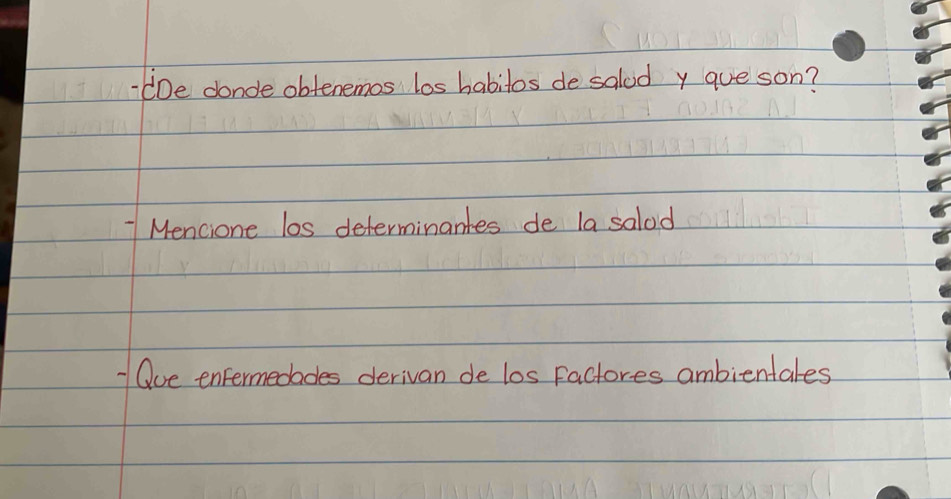 -¿De donde obtenemos los habitos de salud y que son?
- Mencione los determinantes de la salud
- Que enfermedades derivan de los factores ambientales